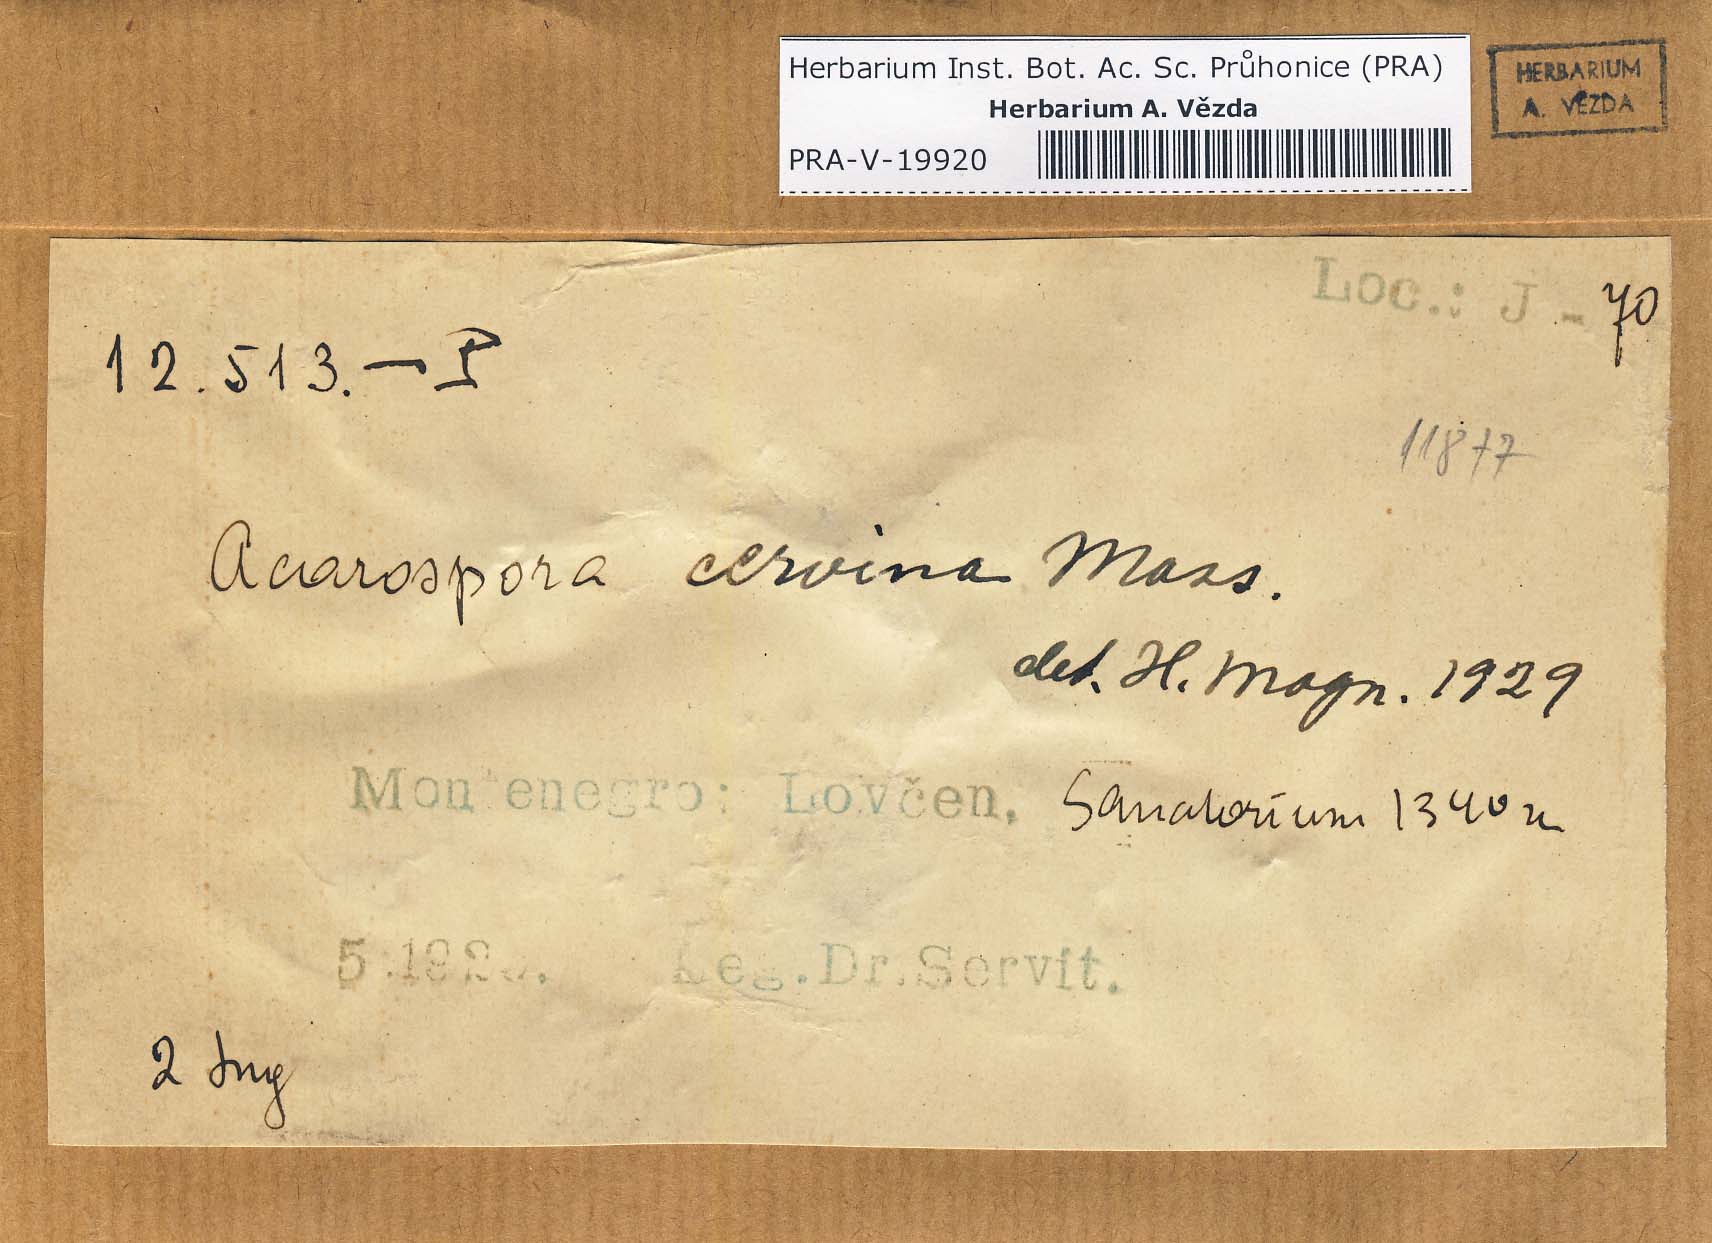 Herbarium Inst. Bot. Ac. Sc. Průhonice (PRA)
Herbarium A. Vězda
PRA-V-19920
HERBARIUM
A. VĚZDA
Loc.: J - 70
12.513.
11877
Acarospora cervina Mass.
det. H. Magn. 1929
Montenegro: Lovčen. Sanatorium 1340 m
5.192 Leg. Dr. Servít.
2